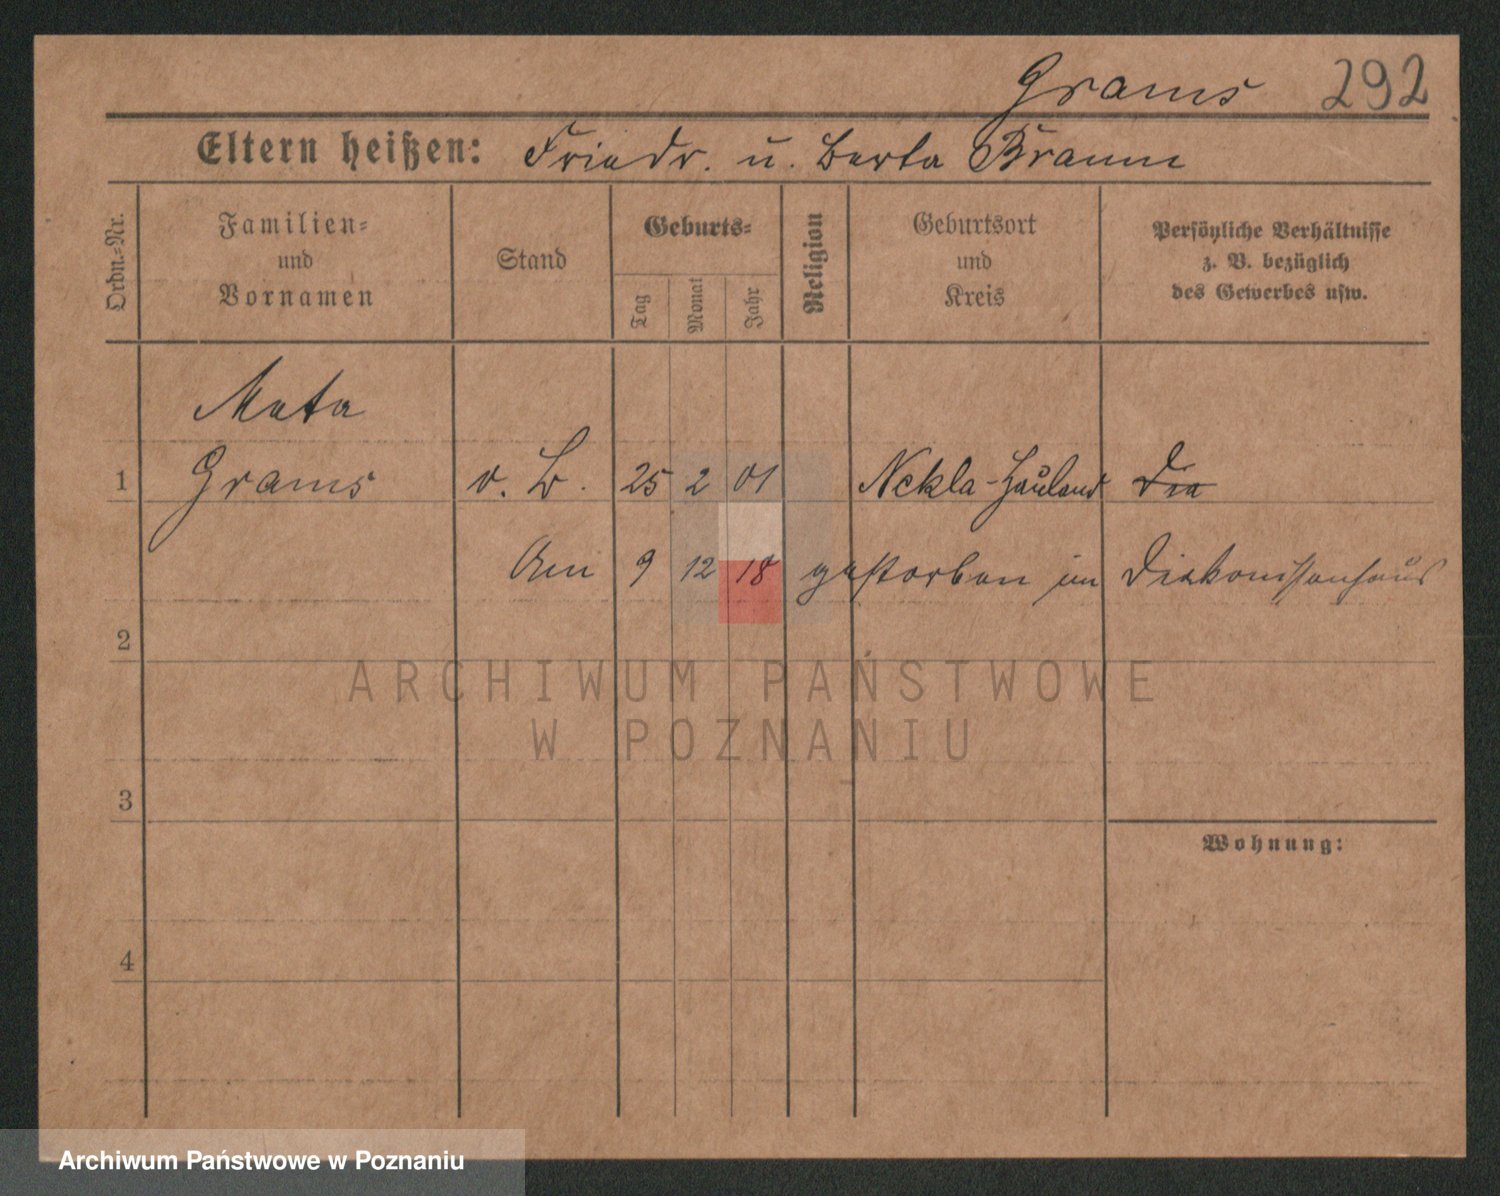 Grams 292
Eltern heißen: Friedr. u. Berta Braun
Ordn.-Nr.
Familien-
und
Vornamen
Stand
Geburts-
Tag
Monat
Jahr
Religion
Geburtsort
und
Kreis
Persönliche Verhältnisse
z. B. bezüglich
des Gewerbes usw.
Meta
1 Grams o. B. 25 2 01 Nekla-Hauland Dia
Am 9 12 18 gestorben im Diakonissenhaus
2
ARCHIWUM PAŃSTWOWE
W POZNANIU
3
Wohnung:
4
Archiwum Państwowe w Poznaniu